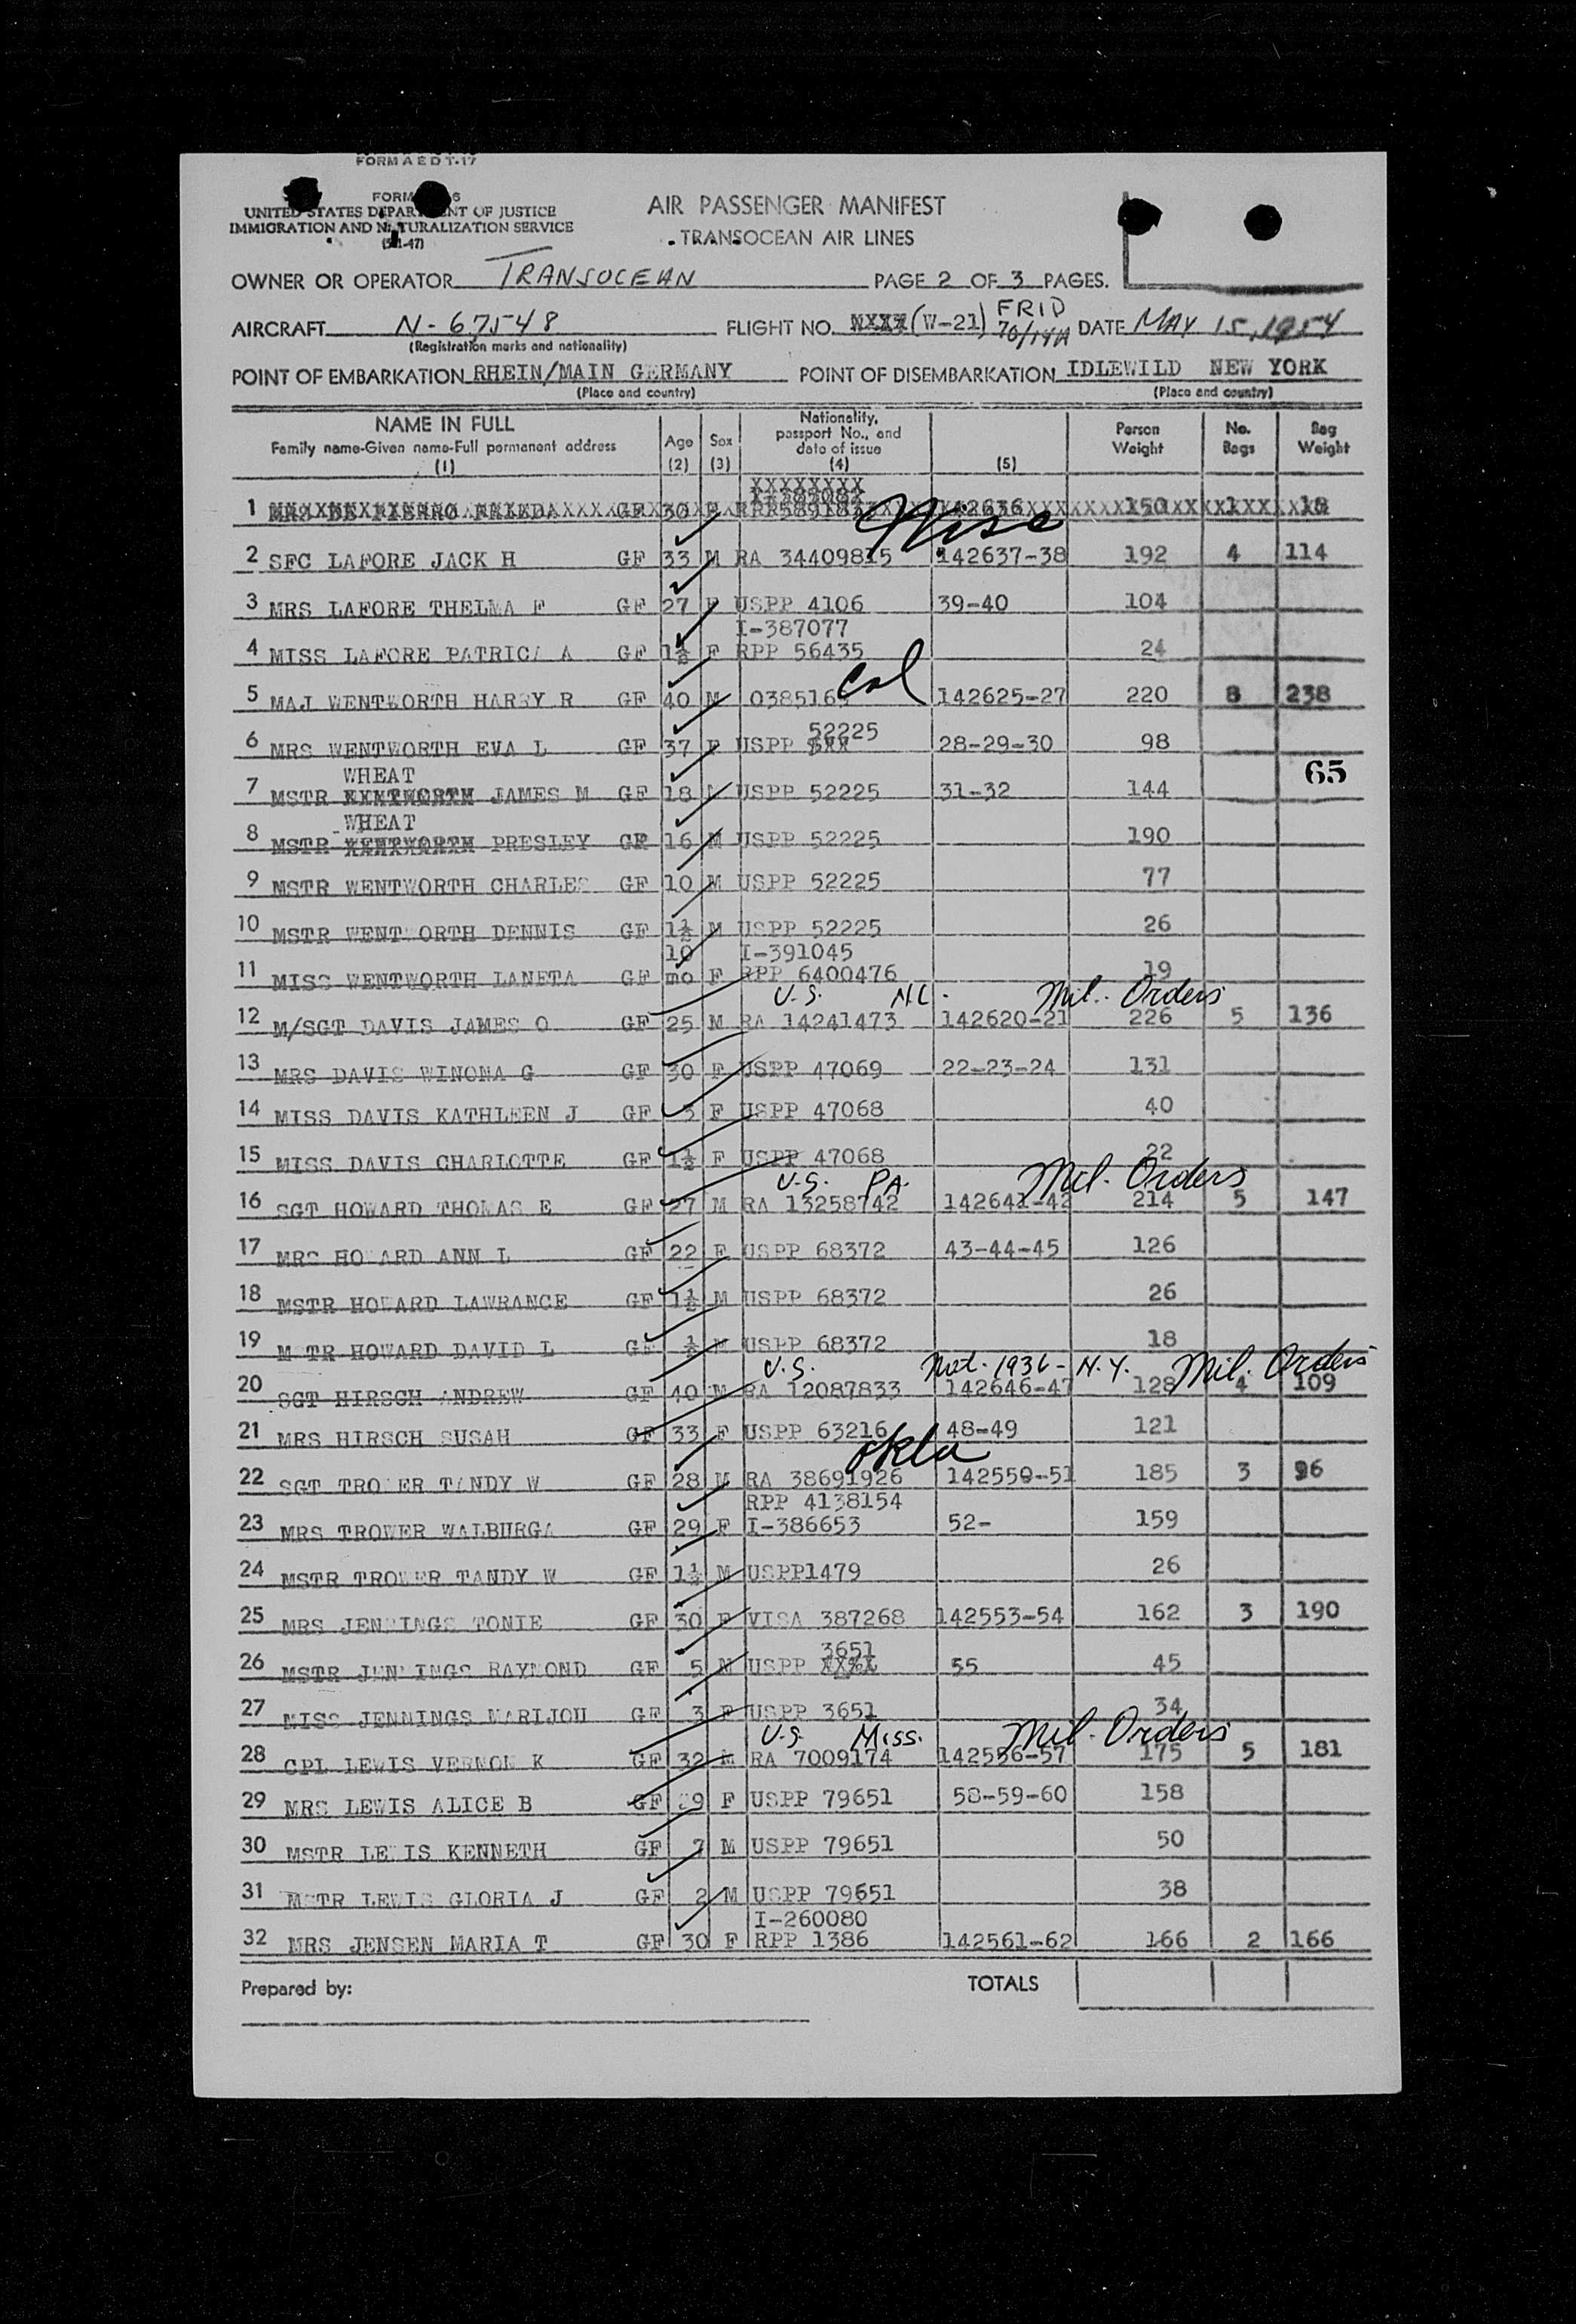 FORM A E D T-17
FORM 6
UNITED STATES DEPARTMENT OF JUSTICE
IMMIGRATION AND NATURALIZATION SERVICE
AIR PASSENGER MANIFEST
TRANSOCEAN AIR LINES
OWNER OR OPERATOR TRANSOCEAN PAGE 2 OF 3 PAGES.
AIRCRAFT N-67548 FLIGHT NO. (W-21) FRID 70/14A DATE MAY 15, 1954
(Registration marks and nationality)
POINT OF EMBARKATION RHEIN/MAIN GERMANY POINT OF DISEMBARKATION IDLEWILD NEW YORK
(Place and country) (Place and country)
NAME IN FULL
Family name-Given name-Full permanent address
(1)
Age (2) Sex (3)
Nationality, passport No., and date of issue (4) (5)
Person Weight No. Bags Bag Weight
XXXXXXXX
1 MRS DE PIERRO FRIEDA GF 30 F 142636 150 1 18
Wisc
2 SFC LAFORE JACK H GF 33 M RA 34409815 142637-38 192 4 114
3 MRS LAFORE THELMA F GF 27 F USPP 4106 39-40 104
I-387077
4 MISS LAFORE PATRICA A GF 1½ F RPP 56435 24
Cal
5 MAJ WENTWORTH HARRY R GF 40 M 038516 142625-27 220 8 238
52225
6 MRS WENTWORTH EVA L GF 37 F USPP XXX 28-29-30 98
65
WHEAT
7 MSTR WENTWORTH JAMES M GF 18 M USPP 52225 31-32 144
WHEAT
8 MSTR WENTWORTH PRESLEY GF 16 M USPP 52225 190
9 MSTR WENTWORTH CHARLES GF 10 M USPP 52225 77
10 MSTR WENTWORTH DENNIS GF 1½ M USPP 52225 26
10 I-391045
11 MISS WENTWORTH LANETA GF mo F RPP 6400476 19
U.S. N.C. Mil. Orders
12 M/SGT DAVIS JAMES O GF 25 M RA 14241473 142620-21 226 5 136
13 MRS DAVIS WINONA G GF 30 F USPP 47069 22-23-24 131
14 MISS DAVIS KATHLEEN J GF 3 F USPP 47068 40
15 MISS DAVIS CHARLOTTE GF 1½ F USPP 47068 22
U.S. PA. Mil. Orders
16 SGT HOWARD THOMAS E GF 27 M RA 13258742 142641-42 214 5 147
17 MRS HOWARD ANN L GF 22 F USPP 68372 43-44-45 126
18 MSTR HOWARD LAWRANCE GF 1½ M USPP 68372 26
19 MSTR HOWARD DAVID L GF ½ M USPP 68372 18
U.S. Nat. 1936 - N.Y. Mil. Orders
20 SGT HIRSCH ANDREW GF 40 M RA 12087833 142646-47 128 4 109
21 MRS HIRSCH SUSAH GF 33 F USPP 63216 48-49 121
Okla
22 SGT TROWER TANDY W GF 28 M RA 38691926 142550-51 185 3 96
RPP 4138154
23 MRS TROWER WALBURGA GF 29 F I-386653 52- 159
24 MSTR TROWER TANDY W GF 1½ M USPP1479 26
25 MRS JENNINGS TONIE GF 30 F VISA 387268 142553-54 162 3 190
3651
26 MSTR JENNINGS RAYMOND GF 5 M USPP XXXX 55 45
27 MISS JENNINGS MARIJOU GF 3 F USPP 3651 34
U.S. Miss. Mil. Orders
28 CPL LEWIS VERNON K GF 32 M RA 7009174 142556-57 175 5 181
29 MRS LEWIS ALICE B GF 29 F USPP 79651 58-59-60 158
30 MSTR LEWIS KENNETH GF 7 M USPP 79651 50
31 MSTR LEWIS GLORIA J GF 2 M USPP 79651 38
I-260080
32 MRS JENSEN MARIA T GF 30 F RPP 1386 142561-62 166 2 166
Prepared by: TOTALS